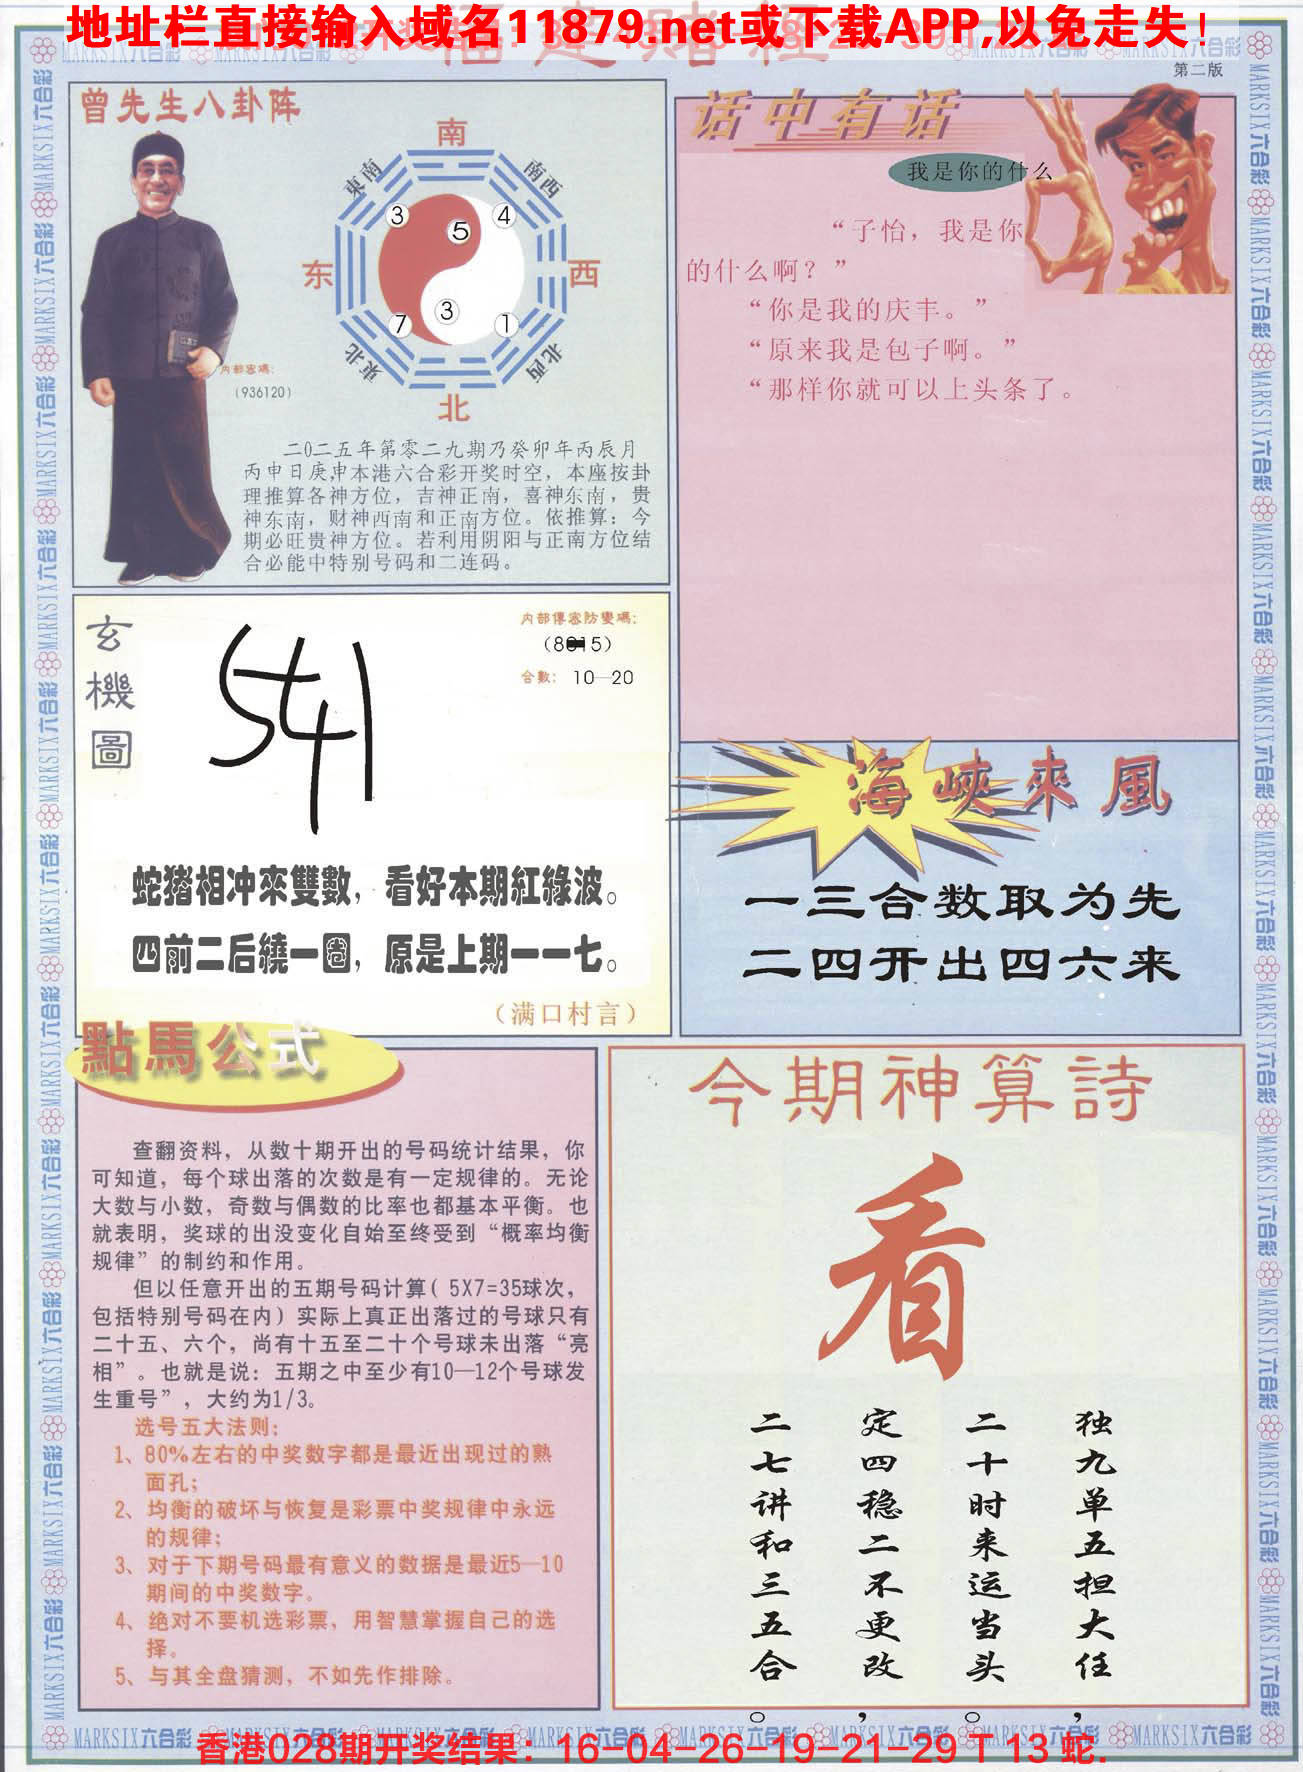 地址栏直接输入域名11879.net或下载APP,以免走失!
第二版
曾先生八卦阵
南
東南
南西
3
5
4
东
西
7
3
1
東北
北西
北
内部密碼:
(936120)
二〇二五年第零二九期乃癸卯年丙辰月
丙申日庚申本港六合彩开奖时空，本座按卦
理推算各神方位，吉神正南，喜神东南，贵
神东南，财神西南和正南方位。依推算：今
期必旺贵神方位。若利用阴阳与正南方位结
合必能中特别号码和二连码。
话中有话
我是你的什么
“子怡，我是你
的什么啊？”
“你是我的庆丰。”
“原来我是包子啊。”
“那样你就可以上头条了。
玄機圖
内部傳密防變碼:
合數: 10—20
541
蛇猪相冲來雙數，看好本期紅綠波。
四前二后繞一圈，原是上期一一七。
（满口村言）
海峡來風
一三合数取为先
二四开出四六来
點馬公式
查翻资料，从数十期开出的号码统计结果，你
可知道，每个球出落的次数是有一定规律的。无论
大数与小数，奇数与偶数的比率也都基本平衡。也
就表明，奖球的出没变化自始至终受到“概率均衡
规律”的制约和作用。
但以任意开出的五期号码计算( 5X7=35球次，
包括特别号码在内）实际上真正出落过的号球只有
二十五、六个，尚有十五至二十个号球未出落“亮
相”。也就是说：五期之中至少有10—12个号球发
生重号”，大约为1/3。
选号五大法则：
1、80%左右的中奖数字都是最近出现过的熟
面孔；
2、均衡的破坏与恢复是彩票中奖规律中永远
的规律；
3、对于下期号码最有意义的数据是最近5—10
期间的中奖数字。
4、绝对不要机选彩票，用智慧掌握自己的选
择。
5、与其全盘猜测，不如先作排除。
今期神算詩
看
独九单五担大任，
二十时来运当头。
定四稳二不更改，
二七讲和三五合。
MARKSIX六合彩
香港028期开奖结果：16-04-26-19-21-29 T 13 蛇.